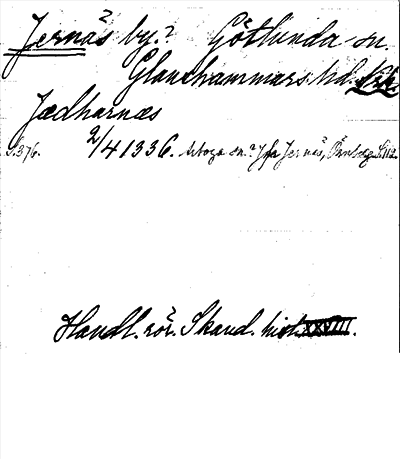 Jernäs by? Götlunda sn.
Glanshammars hd.
Jædharnæs
S. 376. 2/4 1336. Arboga sn.? Jfr Jernäs,
Handl. rör. Skand. hist. XXVIII.